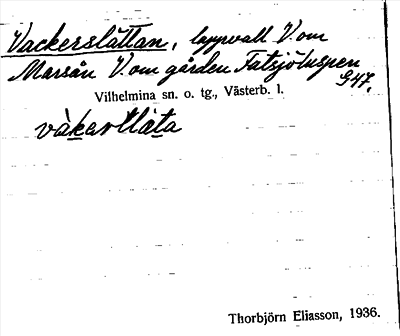 Vackerslåttan, lappvall V. om
Marsån V. om gården Fatsjöluspen
S47.
Vilhelmina sn. o. tg., Västerb. l.
Thorbjörn Eliasson, 1936.